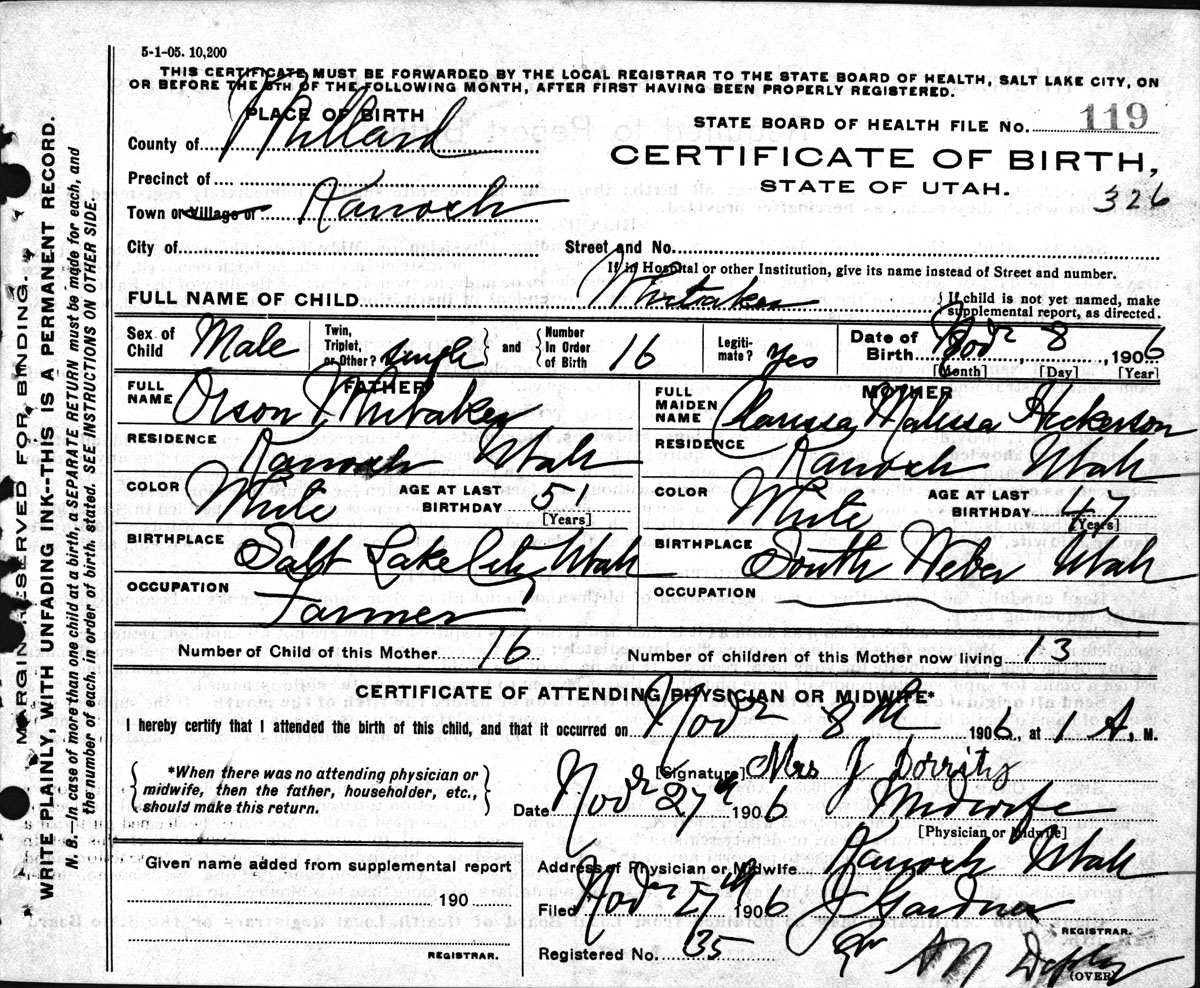 5-1-05. 10,200
THIS CERTIFICATE MUST BE FORWARDED BY THE LOCAL REGISTRAR TO THE STATE BOARD OF HEALTH, SALT LAKE CITY, ON
OR BEFORE THE 5TH OF THE FOLLOWING MONTH, AFTER FIRST HAVING BEEN PROPERLY REGISTERED.
PLACE OF BIRTH
County of Millard
Precinct of
Town or Village of Kanosh
City of
STATE BOARD OF HEALTH FILE No. 119
CERTIFICATE OF BIRTH,
STATE OF UTAH.
326
Street and No.
If in Hospital or other Institution, give its name instead of Street and number.
FULL NAME OF CHILD Whitaker { If child is not yet named, make
supplemental report, as directed.
Sex of Child Male Twin, Triplet, or Other? single } and { Number In Order of Birth 16 Legiti- mate? Yes Date of Birth Novr 8, 1906
[Month] [Day] [Year]
FATHER
FULL NAME Orson Whitaker
RESIDENCE Kanosh Utah
COLOR White AGE AT LAST BIRTHDAY 51
[Years]
BIRTHPLACE Salt Lake City Utah
OCCUPATION Farmer
MOTHER
FULL MAIDEN NAME Clarissa Malissa Hickerson
RESIDENCE Kanosh Utah
COLOR White AGE AT LAST BIRTHDAY
[Years]
BIRTHPLACE South Weber Utah
OCCUPATION
Number of Child of this Mother 16 Number of children of this Mother now living 13
CERTIFICATE OF ATTENDING PHYSICIAN OR MIDWIFE*
I hereby certify that I attended the birth of this child, and that it occurred on Novr 8th 1906, at 1 A. M.
{ *When there was no attending physician or
midwife, then the father, householder, etc.,
should make this return. }
[Signature] Mrs J Dorrity
Date Novr 27th 1906 Midwife
[Physician or Midwife]
Address of Physician or Midwife Kanosh Utah
Filed Novr 27th 1906 J Gardner
REGISTRAR.
Registered No. 35
(OVER)
Given name added from supplemental report
190
REGISTRAR.
MARGIN RESERVED FOR BINDING.
WRITE PLAINLY, WITH UNFADING INK--THIS IS A PERMANENT RECORD.
N. B.—In case of more than one child at a birth, a SEPARATE RETURN must be made for each, and
the number of each, in order of birth, stated. SEE INSTRUCTIONS ON OTHER SIDE.